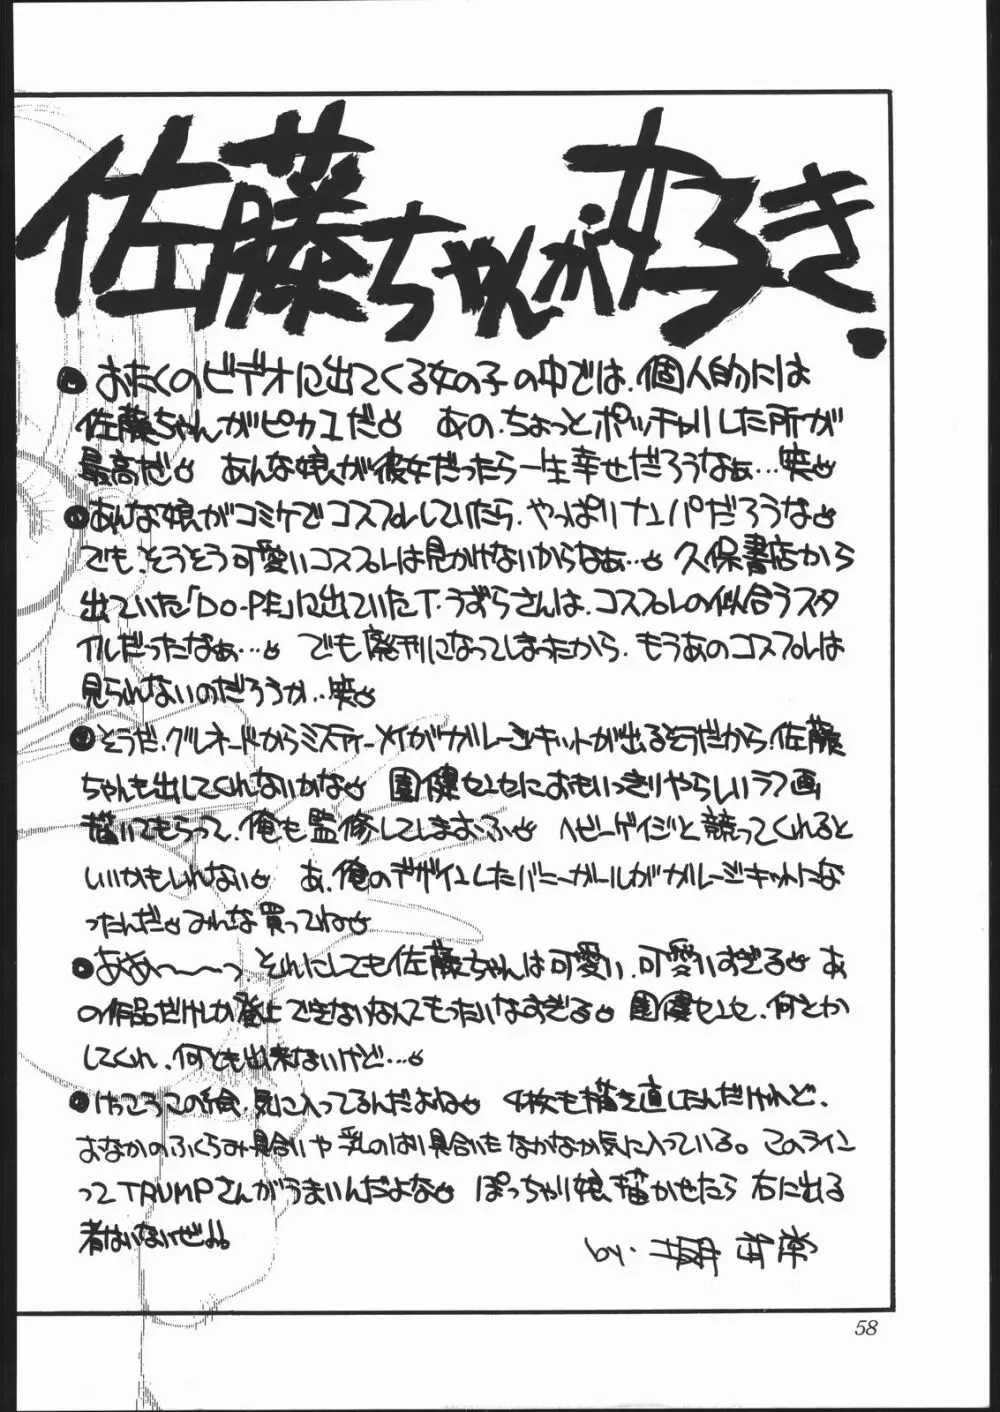 佐藤ちゃんが好き.
おたくのビデオに出てくる女の子の中では、個人的には
佐藤ちゃんがピカ1だ あの、ちょっとポッチャリした所が
最高だ あんな娘が彼女だったら一生幸せだろうなぁ…笑
あんな娘がコミケでコスプレしていたら、やっぱりナンパだろうな
でも、そうそう可愛いコスプレは見かけないからなぁ… 久保書店から
出ていた「DO-PE」に出ていたT・うずらさんは、コスプレの似合うスタ
イルだったなぁ… でも廃刊になってしまったから、もうあのコスプレは
見られないのだろうか…笑
そうだ、グレネードからミスティーメイがガレージキットが出るそうだから、佐藤
ちゃんも出してくれないかな 園健センセにおもいっきりやらしいラフ画
描いてもらって、俺も監修してしまおふ ヘビーゲイジと競ってくれると
いいかもしれない あ、俺のデザインしたバニーガールがガレージキットにな
ったんだ みんな買ってね
ああ〜〜っ、それにしても佐藤ちゃんは可愛い、可愛いすぎる あ
の作品だけしか登上できないなんてもったいなすぎる 園健センセ、何とか
してくれ、何とも出来ないけど…
けっこうこの絵、気に入ってるんだよね 4枚も描き直したんだけれど、
おなかのふくらみ具合いや乳のはり具合いもなかなか気に入っている。このライン
ってTRUMPさんがうまいんだよな ぽっちゃり娘、描かせたら右に出る
者はいないぜ!!
by.
58